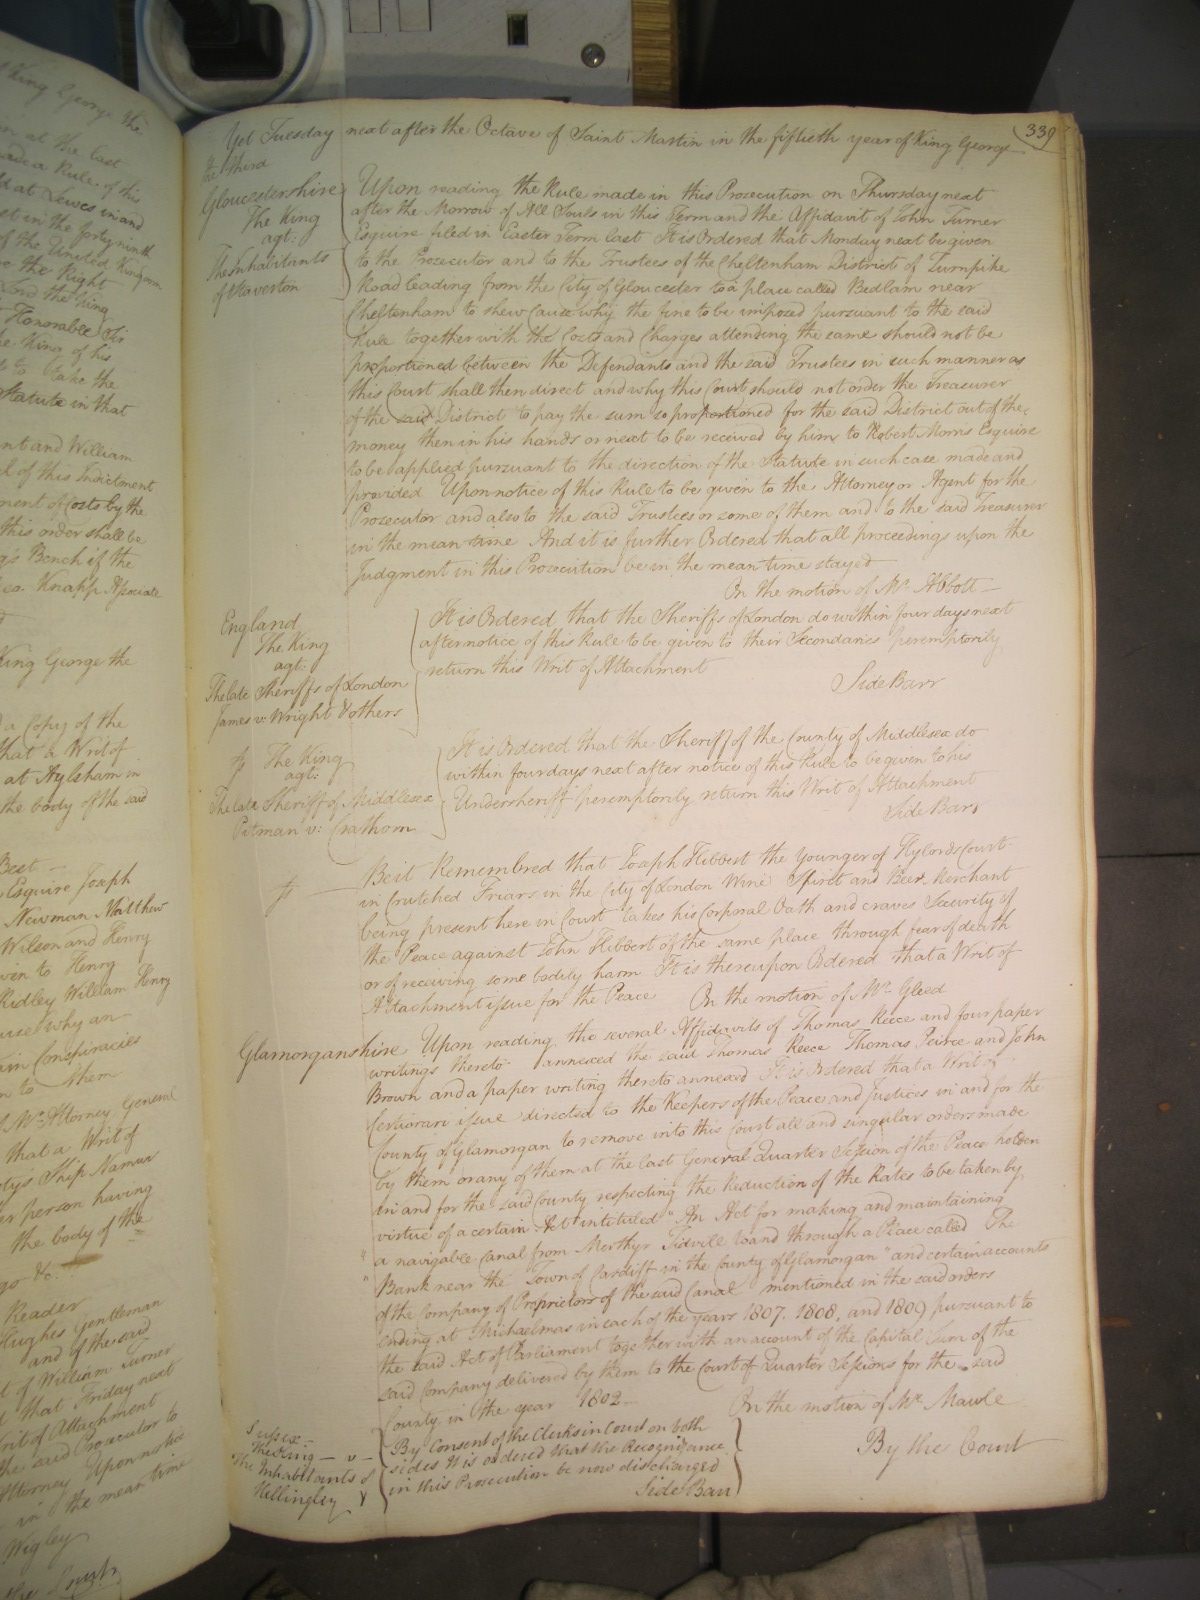 King George the
at the last
made a Rule of this
d at Lewes in and
et in the forty ninth
of the United Kingdom
the Right
Lord the King
Honorable Sir
e King of his
to take the
Statute in that
nt and William
l of this Indictment
ment of Costs by the
this order shall be
g's Bench if the
Geo. Knapp Associate
King George the
a Copy of the
that a Writ of
at Aylsham in
the body of the said
Best
Esquire Joseph
Newman Matthew
Wilson and Henry
ven to Henry
Ridley William Henry
use why an
ain Conspiracies
n to them
Mr. Attorney General
that a Writ of
ty's Ship Namur
er person having
the body of the
go &c.
Reader
Hughes Gentleman
and of the said
t of William Turner
d that Friday next
Writ of Attachment
the said Prosecutor to
Attorney Upon notice
in the mean time
Wigley
the Court
339
Yet Tuesday next after the Octave of Saint Martin in the fiftieth year of King George
the third
Gloucestershire
The King
agt:
The Inhabitants
of Staverton
Upon reading the Rule made in this Prosecution on Thursday next
after the Morrow of All Souls in this Term and the Affidavit of John Turner
Esquire filed in Easter Term last It is Ordered that Monday next be given
to the Prosecutor and to the Trustees of the Cheltenham District of Turnpike
Road leading from the City of Gloucester to a place called Bedlam near
Cheltenham to shew Cause why the fine to be imposed pursuant to the said
Rule together with the Costs and Charges attending the same should not be
proportioned between the Defendants and the said Trustees in such manner as
this Court shall then direct and why this Court should not order the Treasurer
of the said District to pay the sum so proportioned for the said District out of the
money then in his hands or next to be received by him to Robert Morris Esquire
to be applied pursuant to the direction of the Statute in such case made and
provided Upon notice of this Rule to be given to the Attorney or Agent for the
Prosecutor and also to the said Trustees or some of them and to the said Treasurer
in the mean time And it is further Ordered that all proceedings upon the
Judgment in this Prosecution be in the mean time stayed
On the motion of Mr. Abbott
England
The King
agt:
The late Sheriffs of London
James v. Wright & others
It is Ordered that the Sheriffs of London do within four days next
after notice of this Rule to be given to their Secondaries peremptorily
return this Writ of Attachment
Side Barr
The King
agt:
The late Sheriff of Middlesex
Pitman v: Crathorn
It is Ordered that the Sheriff of the County of Middlesex do
within four days next after notice of this Rule to be given to his
Undersheriff peremptorily return this Writ of Attachment
Side Barr
Be it Remembred that Joseph Hibbert the Younger of Hylords Court
in Crutched Friars in the City of London Wine Spirit and Beer Merchant
being present here in Court takes his Corporal Oath and craves Security of
the Peace against John Hibbert of the same place through fear of death
or of receiving some bodily harm It is thereupon Ordered that a Writ of
Attachment issue for the Peace On the motion of Mr. Gleed
Glamorganshire Upon reading the several Affidavits of Thomas Reece and four paper
writings thereto annexed the said Thomas Reece Thomas Peirce and John
Brown and a paper writing thereto annexed It is Ordered that a Writ of
Certiorari issue directed to the Keepers of the Peace and Justices in and for the
County of Glamorgan to remove into this Court all and singular orders made
by them or any of them at the last General Quarter Session of the Peace holden
in and for the said County respecting the Reduction of the Rates to be taken by
virtue of a certain Act intituled "An Act for making and maintaining
" a navigable Canal from Merthyr Tidvill to and through a Place called The
" Bank near the Town of Cardiff in the County of Glamorgan" and certain accounts
of the Company of Proprietors of the said Canal mentioned in the said orders
ending at Michaelmas in each of the years 1807. 1808. and 1809 pursuant to
the said Act of Parliament together with an account of the Capital Sum of the
said Company delivered by them to the Court of Quarter Sessions for the said
County in the year 1802
On the motion of Mr. Maule
By the Court
Sussex
The King v
The Inhabitants of
Hellingley
By Consent of the Clerks in Court on both
sides It is ordered that the Recognizance
in this Prosecution be now discharged
Side Barr